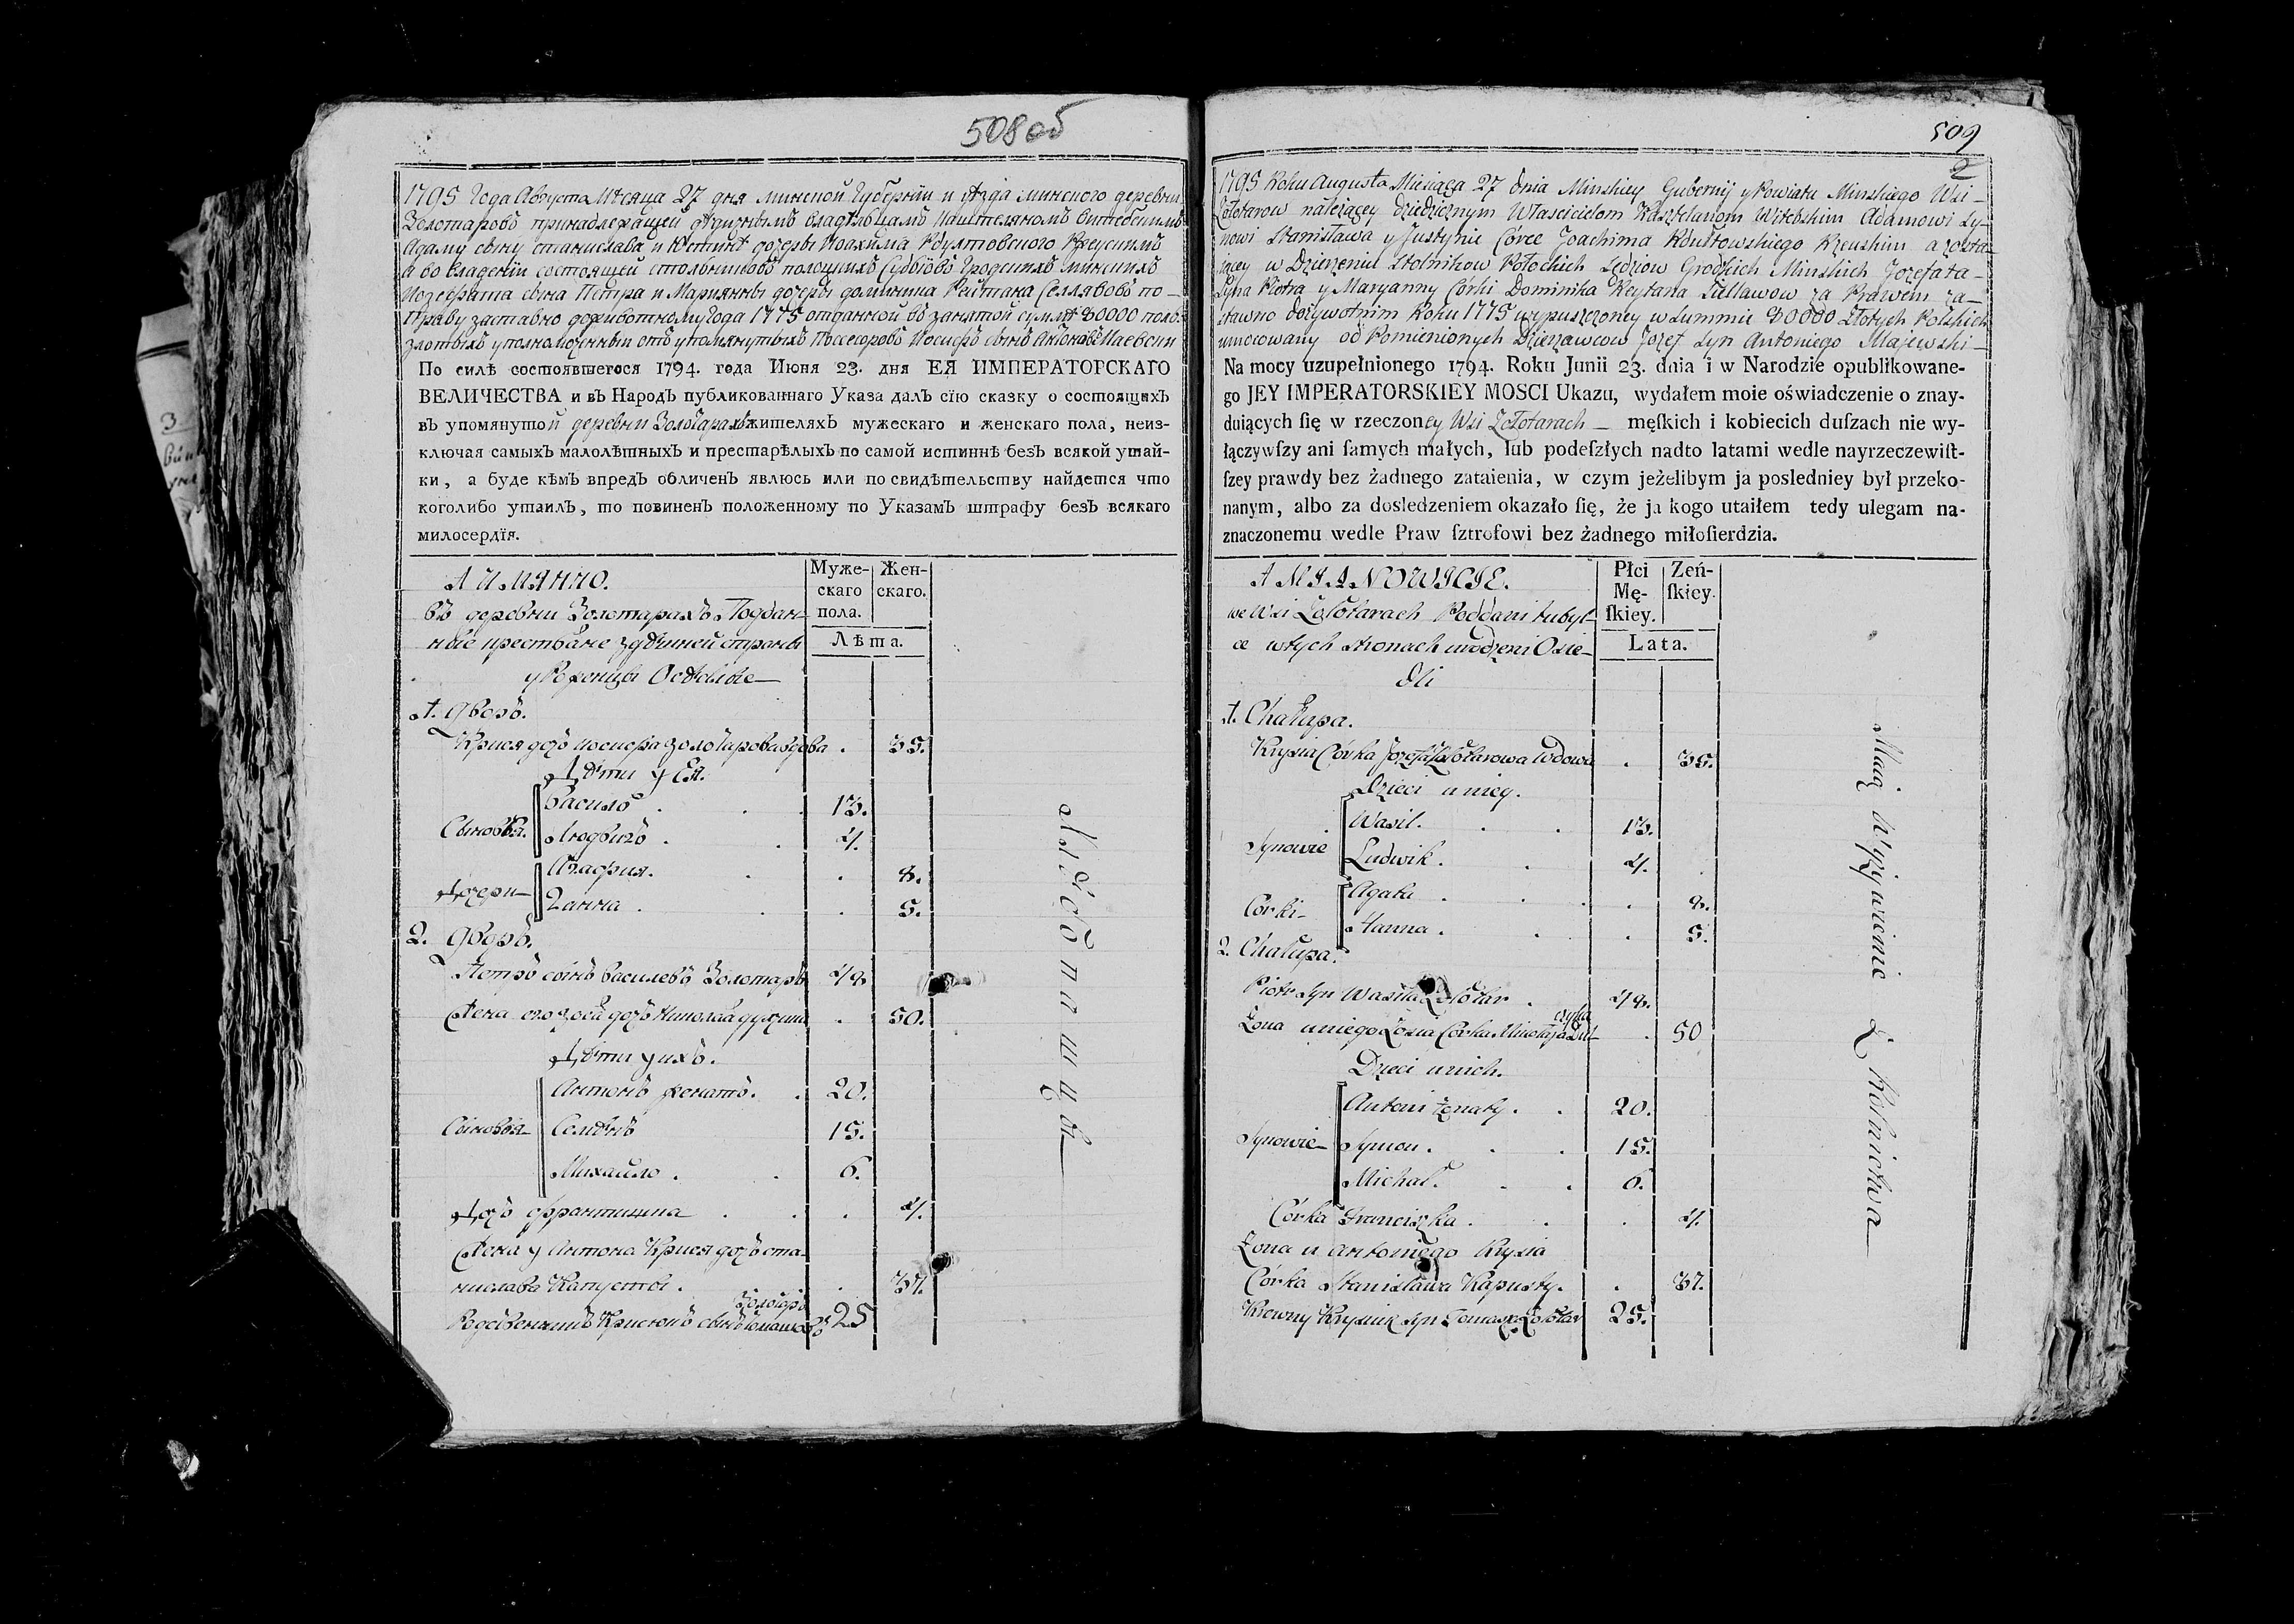 508 об
1795 Года Августа Месяца 27 дня Минской Губернїи и уезда Минского деревни
Золотаровъ принадлежащей дедичнымъ владельцамъ Каштеляномъ Витебскимъ
Адаму сыну Станислава и Юстине дочеры Иоахима Рдултовского
а во владенїи состоящей Стольниковъ Полоцкихъ Судьïовъ Гродскихъ Минскихъ
Иозефата сына Петра и Марїянны дочеры Доминика Рейтана Селлявовъ по
Праву заставно доживотному Года 1775 отданной въ занятой сумме 80000 поль:
злотыхъ уполномоченный отъ упомянутыхъ Поссесоровъ Иосифъ сынъ Антоновъ Маевски
По силѣ состоявшегося 1794. года Июня 23. дня ЕЯ ИМПЕРАТОРСКАГО
ВЕЛИЧЕСТВА и въ Народъ публикованнаго Указа далъ сїю сказку о состоящихъ
въ упомянутой деревни Золотарахъ жителяхъ мужескаго и женскаго пола, неиз-
ключая самыхъ малолѣтныхъ и престарѣлыхъ по самой истиннѣ безъ всякой утай-
ки, а буде кѣмъ впредъ обличенъ явлюсь или по свидѣтельству найдется что
коголибо утаилъ, то повиненъ положенному по Указамъ штрафу безъ всякаго
милосердїя.
А ИМЯННО.
Муже-
скаго
пола.
Жен-
скаго.
Лѣта.
въ деревни Золотарахъ Поддан-
ные крестьяне здешней стороны
уроженцы Оседлые
1. дворъ.
Крися дочъ Иосифа Золотарова вдова . 35.
Дети у Ея.
Сыновья.
Василь . . 13.
Людвикъ . . 4.
Дочери
Агафия. . . 8.
Ганна . . . 5.
2. дворъ.
Петръ сынъ Василевъ Золотаръ 48
Жена его Зося дочъ Николая . 50.
Дети у ихъ.
Сыновья
Антонъ женатъ. . 20.
Семенъ 15.
Михайло . . 6.
Дочъ Францишка . . . 4.
Жена у Антона Крися дочъ Ста-
нислава Капусты . . 37.
Золотаръ
Родственникъ Крисюкъ сынъ Томашовъ 25
509
2
1795 Roku Augusta Miesiąca 27 dnia Minskiey Gubernij y Powiatu Minskiego Wsi
Zołotarow należącey dziedzicznym Włascicielom Kasztelanom Witebskim Adamowi Sy-
nowi Stanisława y Justynie Córce Joachima Rdułtowskiego a zosta-
iącey w Dzierżeniu Stolnikow Połockich Sędziow Grodskich Minskich Jozefata
Syna Piotra y Maryanny Corki Dominika Reytana Sallawow za Prawem za-
stawno dożywotnim Roku 1775 wypuszczoney w Summie 80000 Złotych Polskich
umocowany od Pomienionych Dzierżawcow Jozef Syn Antoniego Majewski
Na mocy uzupełnionego 1794. Roku Junii 23. dnia i w Narodzie opublikowane-
go JEY IMPERATORSKIEY MOSCI Ukazu, wydałem moie oświadczenie o znay-
duiących ſię w rzeczoney Wsi Zołotarach męſkich i kobiecich duſzach nie wy-
łączywſzy ani ſamych małych, lub podeſzłych nadto latami wedle nayrzeczewiſt-
ſzey prawdy bez żadnego zataienia, w czym jeżelibym ja posledniey był przeko-
nanym, albo za dosledzeniem okazało ſię, że ja kogo utaiłem tedy ulegam na-
znaczonemu wedle Praw ſztrofowi bez żadnego miłoſierdzia.
A MIANOWICIE.
Płci
Mę-
ſkiey.
Zeń-
ſkiey.
Lata.
we Wsi Zołotarach Poddani tubyl-
ce w tych stronach urodzeni Osie-
dli
1. Chałupa.
Krysia Córka Jozefa Zołotarowa Wdowa . 35.
Dzieci u niey.
Synowie
Wasil. . . 13.
Ludwik. . 4.
Corki
Agata . . . . 8.
Hanna . . . 5.
2. Chałupa.
Piotr Syn Wasila Zołotar . 48.
Żona u niego Zosia Corka Mikołaja . 50
Dzieci u nich.
Synowie
Antoni żonaty. . 20.
Symon. . . 15.
Michał. . . 6.
Córka Franciszka . . . 4.
Żona u Antoniego Krysia
Córka Stanisława Kapusty. . 37.
Krewny Krysiuk Syn Tomasza Zołotar 25.
Maią Wyżywienie Z Rolnictwa